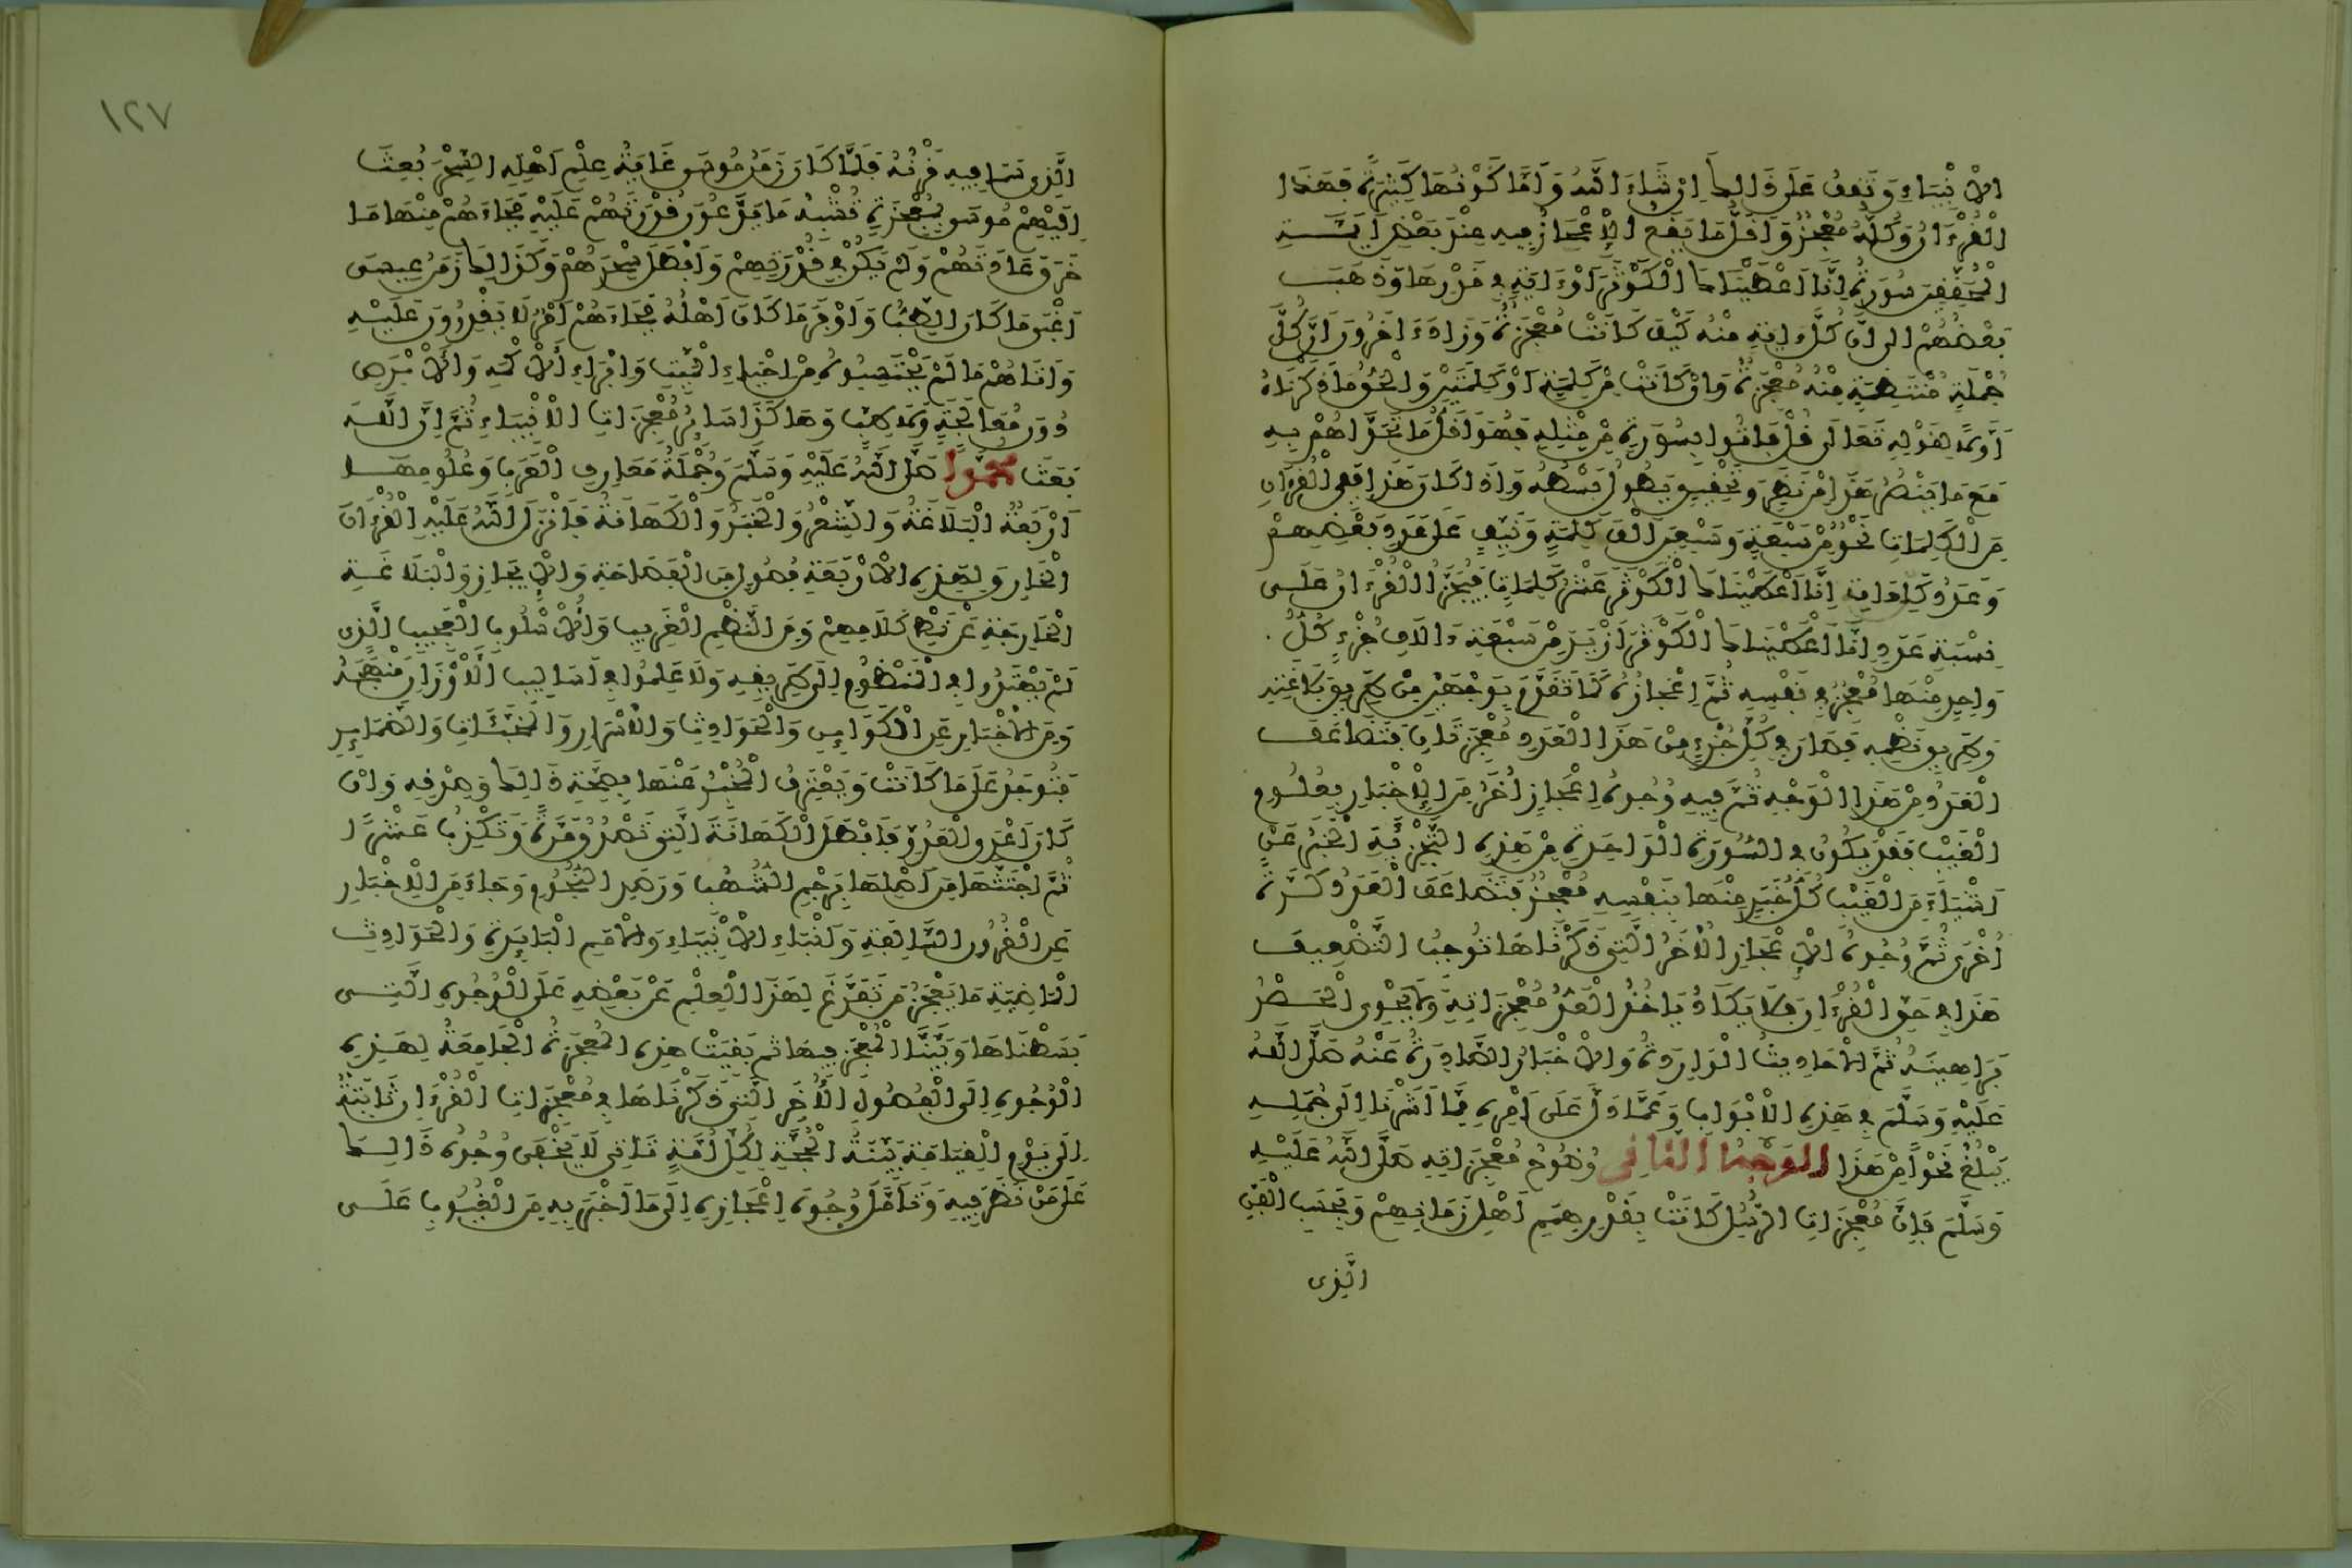 الْأَنْبِيَاءِ وَتَقِفُ عَلَى ذَالِكَ إِنْ شَاءَ اللَّهُ وَأَمَّا كَوْنُهَا كَثِيرَةً فَهَذَا
الْقُرْءَانُ وَكُلُّهُ مُعْجِزٌ وَأَقَلُّ مَا يَقَعُ الْإِعْجَازُ فِيهِ عِنْدَ بَعْضِ أَيِمَّةِ
الْمُحَقِّقِينَ سُورَةُ إِنَّا أَعْطَيْنَاكَ الْكَوْثَرَ أَوْ ءَايَةٍ فِي قَدْرِهَا وَذَهَبَ
بَعْضُهُمْ إِلَى أَنَّ كُلَّ ءَايَةٍ مِنْهُ كَيْفَ كَانَتْ مُعْجِزَةٌ وَزَادَ ءَاخَرُونَ أَنَّ كُلَّ
جُمْلَةٍ مُنْتَظِمَةٍ مِنْهُ مُعْجِزَةٌ وَإِنْ كَانَتْ مِنْ كَلِمَةٍ أَوْ كَلِمَتَيْنِ وَالْحَقُّ مَا ذَكَرْنَاهُ
أَوَّلًا لِقَوْلِهِ تَعَالَى قُلْ فَاتُوا بِسُورَةٍ مِنْ مِثْلِهِ فَهُوَ أَقَلُّ مَا تَحَدَّاهُمْ بِهِ
مَعَ مَا يَنْصُرُ هَذَا مِنْ نَظَرٍ وَتَحْقِيقٍ يَطُولُ بَسْطُهُ وَإِذَا كَانَ هَذَا فَفِي الْقُرْءَانِ
مِنَ الْكَلِمَاتِ نَحْوٌ مِنْ سَبْعَةٍ وَسَبْعِينَ أَلْفَ كَلِمَةٍ وَنَيِّفٍ عَلَى عَدَدِ بَعْضِهِمْ
وَعَدَدُ كَلِمَاتِ إِنَّا أَعْطَيْنَاكَ الْكَوْثَرَ عَشْرُ كَلِمَاتٍ فَيُجَزَّأُ الْقُرْءَانُ عَلَى
نِسْبَةِ عَدَدِ إِنَّا أَعْطَيْنَاكَ الْكَوْثَرَ أَزْيَدَ مِنْ سَبْعَةِ ءَالَافِ جُزْءٍ كُلُّ
وَاحِدٍ مِنْهَا مُعْجِزٌ فِي نَفْسِهِ ثُمَّ إِعْجَازُهُ كَمَا تَقَدَّمَ بِوَجْهَيْنِ مِنْ طَرِيقِ بَلَاغَتِهِ
وَطَرِيقِ نَظْمِهِ فَصَارَ فِي كُلِّ جُزْءٍ مِنْ هَذَا الْعَدَدِ مُعْجِزَتَانِ فَتَضَاعَفَ
الْعَدَدُ مِنْ هَذَا الْوَجْهِ ثُمَّ فِيهِ وُجُوهُ إِعْجَازٍ أُخَرُ مِنَ الْإِخْبَارِ بِعُلُومِ
الْغَيْبِ فَقَدْ يَكُونُ فِي السُّورَةِ الْوَاحِدَةِ مِنْ هَذِهِ التَّجْزِئَةِ الْخَبَرُ عَنْ
أَشْيَاءَ مِنَ الْغَيْبِ كُلُّ خَبَرٍ مِنْهَا بِنَفْسِهِ مُعْجِزٌ فَتَضَاعَفَ الْعَدَدُ كَرَّةً
أُخْرَى ثُمَّ وُجُوهُ الْإِعْجَازِ الْأُخَرُ الَّتِي ذَكَرْنَاهَا تُوجِبُ التَّضْعِيفَ
هَذَا فِي حَقِّ الْقُرْءَانِ فَلَا يَكَادُ يَاخُذُ الْعَدُّ مُعْجِزَاتِهِ وَلَا يَحْوِي الْحَصْرُ
بَرَاهِينَهُ ثُمَّ الْأَحَادِيثُ الْوَارِدَةُ وَالْأَخْبَارُ الصَّادِرَةُ عَنْهُ صَلَّى اللَّهُ
عَلَيْهِ وَسَلَّمَ فِي هَذِهِ الْأَبْوَابِ وَعَمَّا دَلَّ عَلَى أَمْرِهِ مِمَّا أَشَرْنَا إِلَى جُمَلِهِ
يَبْلُغُ نَحْوًا مِنْ هَذَا الوَجْهُ الثَّانِي وُضُوحُ مُعْجِزَاتِهِ صَلَّى اللَّهُ عَلَيْهِ
وَسَلَّمَ فَإِنَّ مُعْجِزَاتِ الرُّسُلِ كَانَتْ بِقَدْرِ هِمَمِ أَهْلِ زَمَانِهِمْ وَبِحَسَبِ الْفَنِّ
الَّذِي
١٢٧
الَّذِي سَمَا فِيهِ قَرْنُهُ فَلَمَّا كَانَ زَمَنُ مُوسَى غَايَةُ عِلْمِ أَهْلِهِ السِّحْرَ بُعِثَ
إِلَيْهِمْ مُوسَى بِمُعْجِزَةٍ تُشْبِهُ مَا يَدَّعُونَ قُدْرَتَهُمْ عَلَيْهِ فَجَاءَهُمْ مِنْهَا مَا
خَرَقَ عَادَتَهُمْ وَلَمْ يَكُنْ فِي قُدْرَتِهِمْ وَأَبْطَلَ سِحْرَهُمْ وَكَذَالِكَ زَمَنُ عِيسَى
أَغْنَى مَا كَانَ الطِّبُّ وَأَوْفَرَ مَا كَانَ أَهْلُهُ فَجَاءَهُمْ أَمْرٌ لَا يَقْدِرُونَ عَلَيْهِ
وَأَتَاهُمْ مَا لَمْ يَحْتَسِبُوهُ مِنْ إِحْيَاءِ الْمَيِّتِ وَإِبْرَاءِ الْأَكْمَهِ وَالْأَبْرَصِ
دُونَ مُعَالَجَةٍ وَلَا طِبٍّ وَهَاكَذَا سَائِرُ مُعْجِزَاتِ الْأَنْبِيَاءِ ثُمَّ إِنَّ اللَّهَ
بَعَثَ مُحَمَّدًا صَلَّى اللَّهُ عَلَيْهِ وَسَلَّمَ وَجُمْلَةُ مَعَارِفِ الْعَرَبِ وَعُلُومِهَا
أَرْبَعَةٌ الْبَلَاغَةُ وَالشِّعْرُ وَالْخَبَرُ وَالْكَهَانَةُ فَأَنْزَلَ اللَّهُ عَلَيْهِ الْقُرْءَانَ
الْخَارِقَ لِهَذِهِ الْأَرْبَعَةِ فُصُولٍ مِنَ الْفَصَاحَةِ وَالْإِيجَازِ وَالْبَلَاغَةِ
الْخَارِجَةِ عَنْ نَمَطِ كَلَامِهِمْ وَمِنَ النَّظْمِ الْغَرِيبِ وَالْأُسْلُوبِ الْعَجِيبِ الَّذِي
لَمْ يَهْتَدُوا فِي الْمَنْظُومِ إِلَى طَرِيقِهِ وَلَا عَلِمُوا فِي أَسَالِيبِ الْأَوْزَانِ مَنْهَجَهُ
وَمِنَ الْأَخْبَارِ عَنِ الْكَوَائِنِ وَالْحَوَادِثِ وَالْأَسْرَارِ وَالْمُخَبَّئَاتِ وَالضَّمَائِرِ
فَتُوجَدُ عَلَى مَا كَانَتْ وَيَعْتَرِفُ الْمُخْبَرُ عَنْهَا بِصِحَّةِ ذَالِكَ وَصِدْقِهِ وَإِنْ
كَانَ أَعْدَى الْعَدُوِّ فَأَبْطَلَ الْكَهَانَةَ الَّتِي تَصْدُقُ مَرَّةً وَتَكْذِبُ عَشْرًا
ثُمَّ اجْتَثَّهَا مِنْ أَصْلِهَا بِرَجْمِ الشُّهُبِ وَرَصْدِ النُّجُومِ وَجَاءَ مِنَ الْأَخْبَارِ
عَنِ الْقُرُونِ السَّالِفَةِ وَأَنْبَاءِ الْأَنْبِيَاءِ وَالْأُمَمِ الْبَائِدَةِ وَالْحَوَادِثِ
الْمَاضِيَةِ مَا يَعْجِزُ مَنْ تَفَرَّغَ لِهَذَا الْعِلْمِ عَنْ بَعْضِهِ عَلَى الْوُجُوهِ الَّتِي
بَسَطْنَاهَا وَبَيَّنَّا الْمُعْجِزَ فِيهَا ثُمَّ بَقِيَتْ هَذِهِ الْمُعْجِزَةُ الْجَامِعَةُ لِهَذِهِ
الْوُجُوهِ إِلَى الْفُصُولِ الْأُخَرِ الَّتِي ذَكَرْنَاهَا فِي مُعْجِزَاتِ الْقُرْءَانِ ثَابِتَةً
إِلَى يَوْمِ الْقِيَامَةِ بَيِّنَةَ الْحُجَّةِ لِكُلِّ أُمَّةٍ تَاتِي لَا يَخْفَى وُجُوهُ ذَالِكَ
عَلَى مَنْ نَظَرَ فِيهِ وَتَأَمَّلَ وُجُوهَ إِعْجَازِهِ إِلَى مَا أَخْبَرَ بِهِ مِنَ الْغُيُوبِ عَلَى